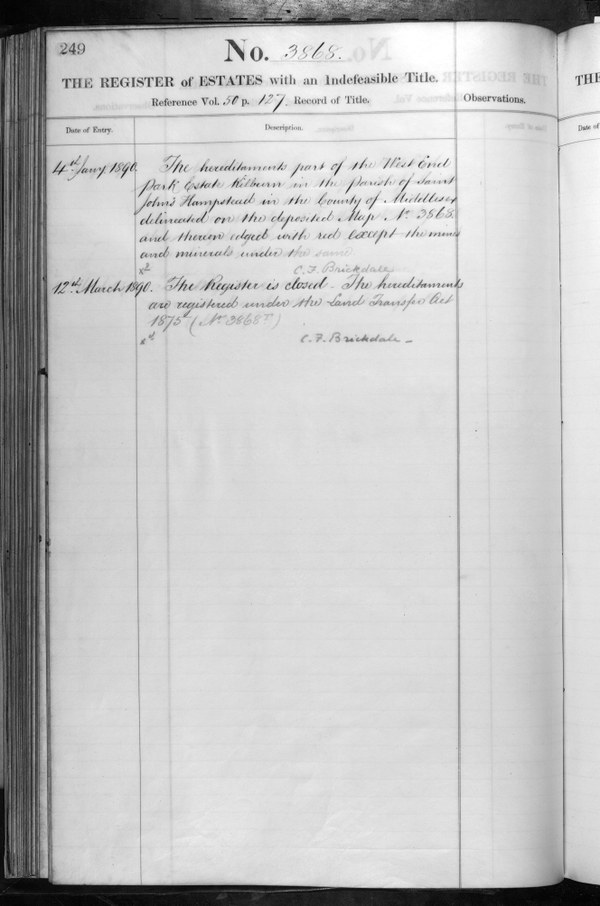 249
No. 3868.
THE REGISTER of ESTATES with an Indefeasible Title.
Reference Vol. 50 p. 127. Record of Title.
Observations.
Date of Entry.
Description.
4th Jany 1890.
The hereditaments part of the West End
Park Estate Kilburn in the Parish of Saint
John's Hampstead in the County of Middlesex
delineated on the deposited Map No 3868
and thereon edged with red except the mines
and minerals under the same
C. F. Brickdale
12th March 1890.
The Register is closed. The hereditaments
are registered under the Land Transfer Act
1875 (No 3868)
C. F. Brickdale
THE
Date of